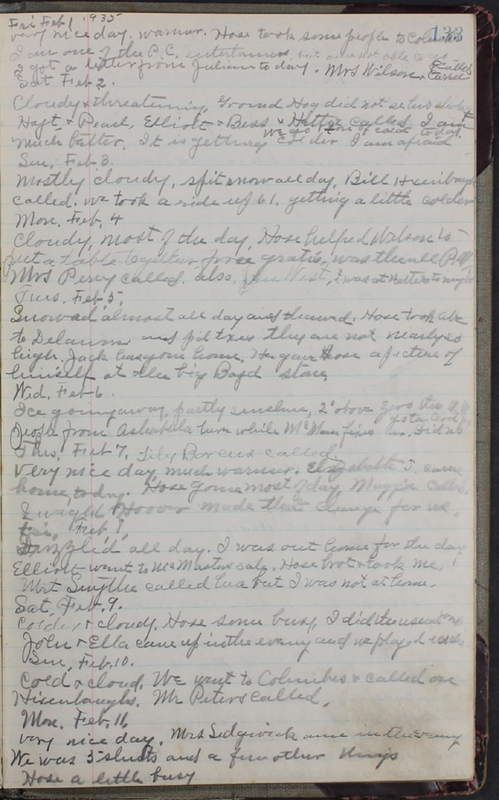 133
Fri Feb 1 1935
very nice day. warmer. Hose took some people to
I am one of the P.C. entertainers but am not able to go
I got a letter from Julian to day. Mrs Wilson & called
Sat Feb 2.
Cloudy & threatening, Ground Hog did not see his shadow
Hoyt & Pearl, Elliott & Bess & Hettie called I am
much better, It is getting colder I am afraid
Sun, Feb 3.
Mostly cloudy, spit snow all day, Bill
called. we took a ride up 61. getting a little colder
Mon. Feb, 4
Cloudy, most of the day. Hose helped Wilson's
put a table together free gratis, was there all P.M
Mrs Perry called. also, West, I was at Hetties to night
Tues. Feb, 5,
Snowed almost all day and thawed. Hose took
to Delaware and pd taxes they are not nearly so
high. Jack has gone home, He gave Hose a picture of
himself at the big store,
Wed. Feb 6.
Ice going away, partly sunshine, 2° above zero this A.M.
people from Ashtabula here while
Thus, Feb 7, called.
Very nice day, much warmer. Elizabeth S. came
home today. Hose gone most of day, Maggie called.
made that change for me.
Fri, Feb 8,
Drizzled all day. I was out home for the day
Elliott went to McMasters sale. Hose brot & took me,
Mrt Smythe called here but I was not at home.
Sat, Feb, 9.
Colder & cloudy, Hose some busy, I did the usual
John & Ella came up in the evening and we played
Sun, Feb, 10.
Cold & cloud, We went to Columbus & called on
Hisenbaughs. Mr Peters called,
Mon. Feb, 11,
very nice day. Mrs Sedgwick came in the evening
We was 3 shirts and a few other things
Hose a little busy